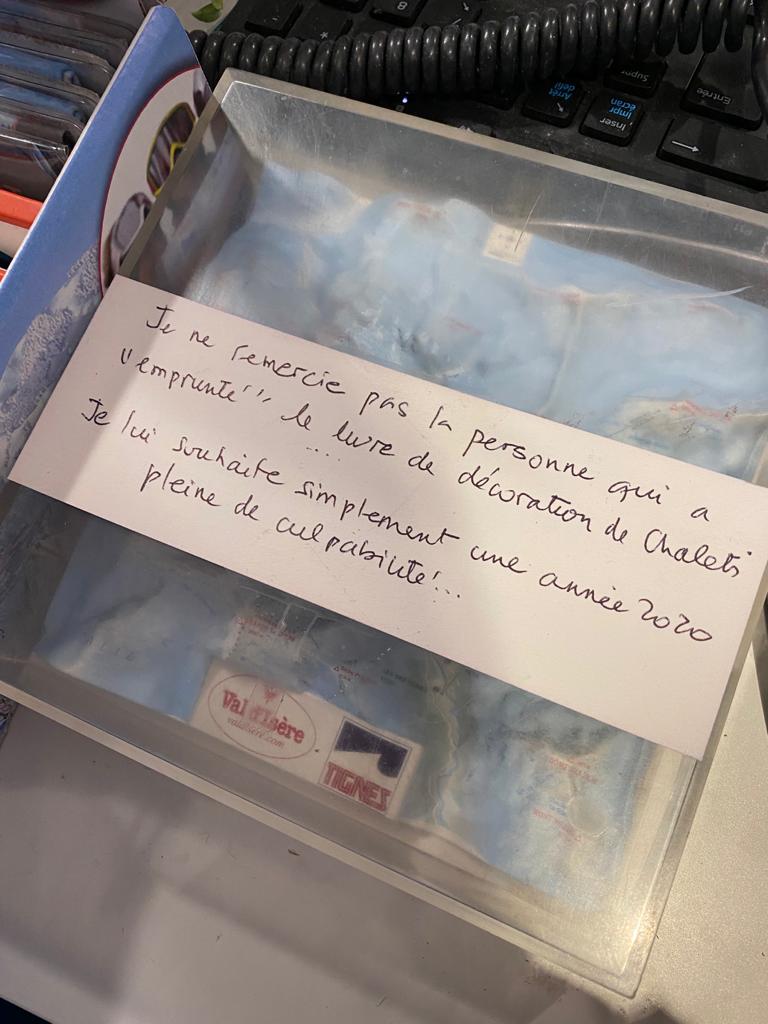 Je ne remercie pas la personne qui a
"emprunté", le livre de décoration de Chalets
....
Je lui souhaite simplement une année 2020
pleine de culpabilité!...
Val d'Isère
valdisere.com
TIGNES
Suppr
Entrée
Arrêt
défil
Impr
écran
Inser